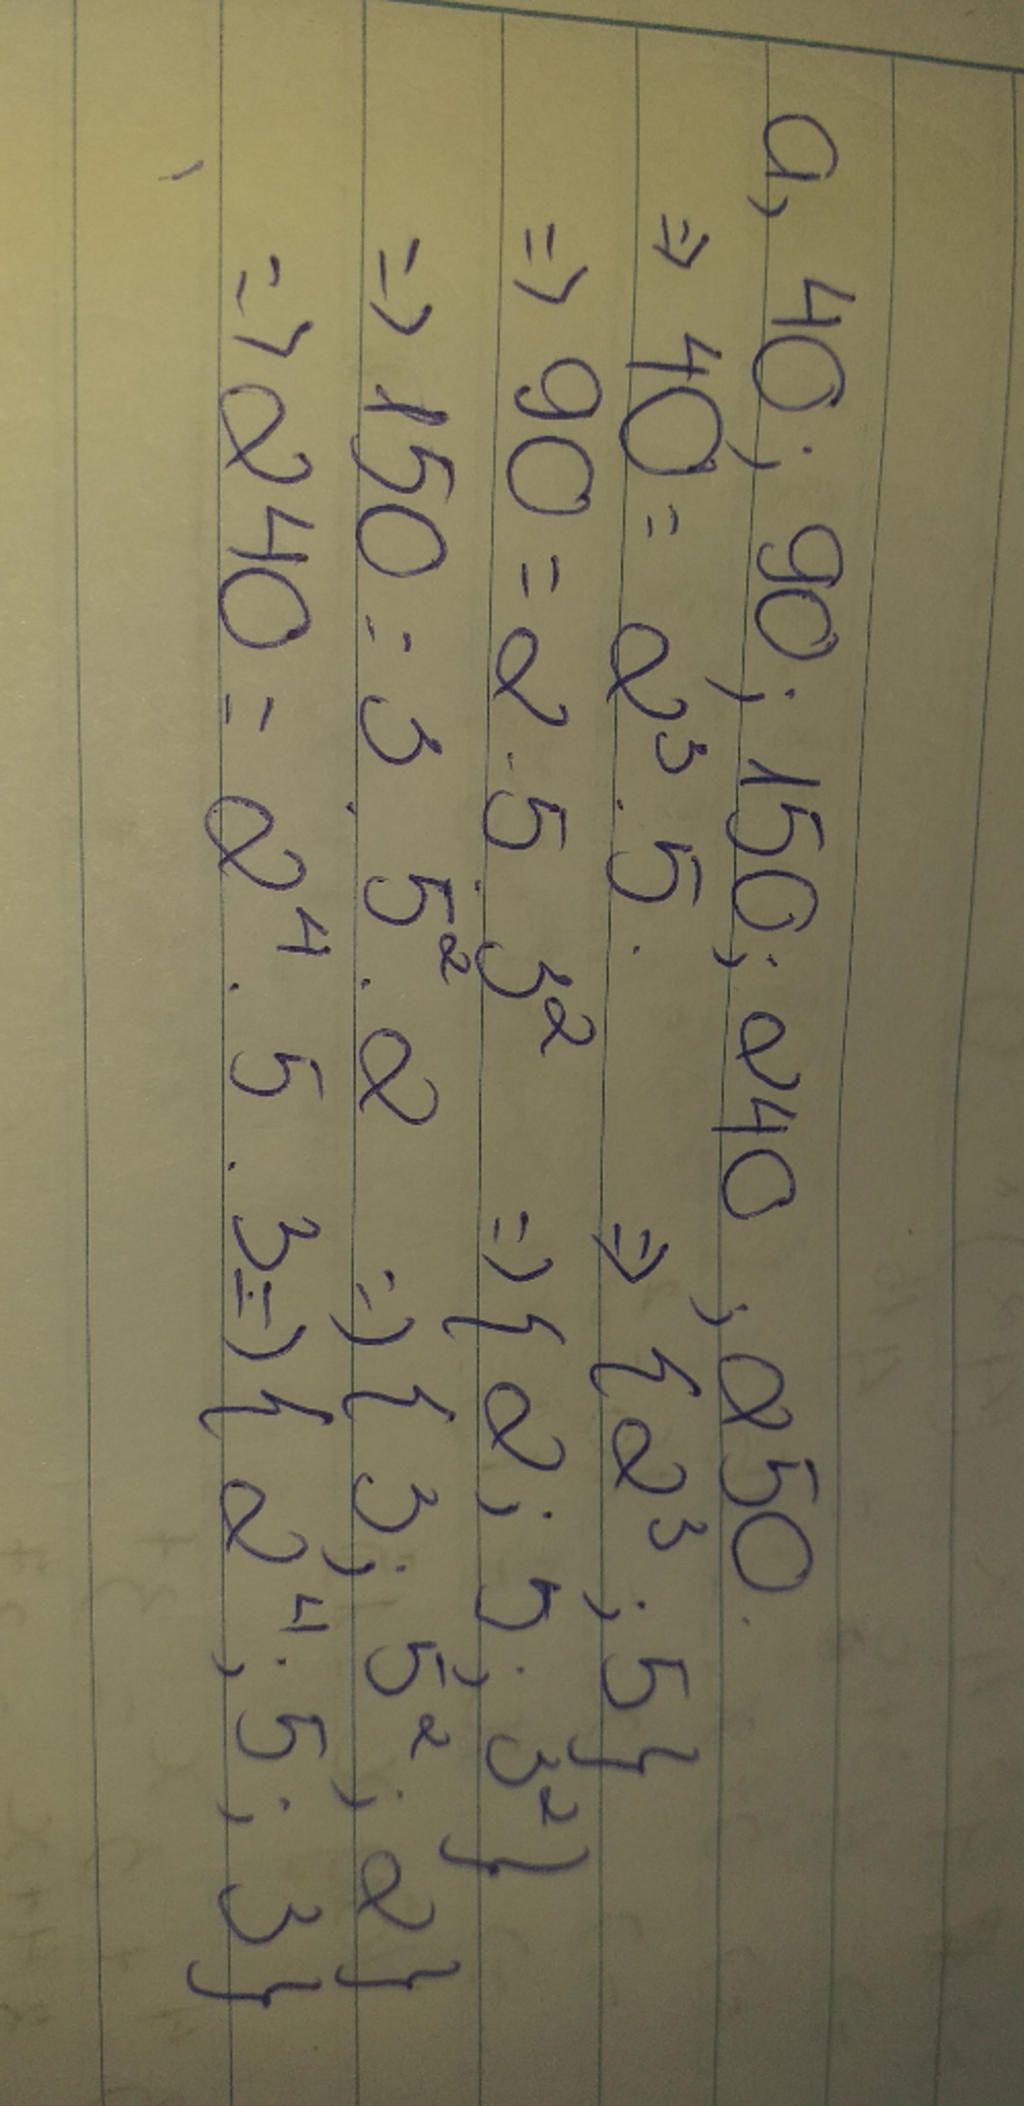 a, 40; 90; 150; 240; 250.
=> 40 = 2³ . 5. => {2³; 5}
=> 90 = 2 . 5 . 3² => {2; 5; 3²}
=> 150 = 3 . 5² . 2 => {3; 5²; 2}
=> 240 = 2⁴ . 5 . 3 => {2⁴; 5; 3}